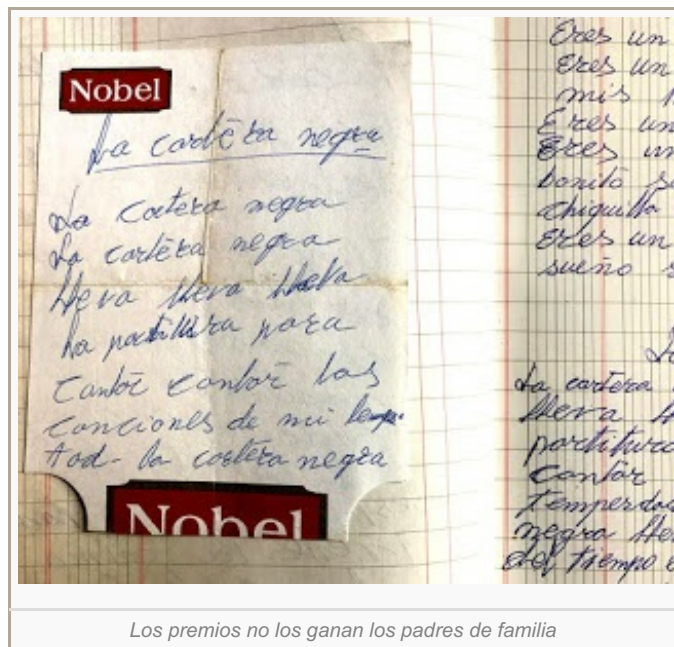 Nobel
La cartera negra
La cartera negra
La cartera negra
lleva lleva lleva
La partitura para
cantar cantar las
canciones de mi
tad - la cartera negra
Nobel
Eres un
Eres un
mis
Eres un
Eres un
bonito
chiquilla
Eres un
sueño
La
La cartera
lleva
partitura
cantar
negra
del tiempo
Los premios no los ganan los padres de familia